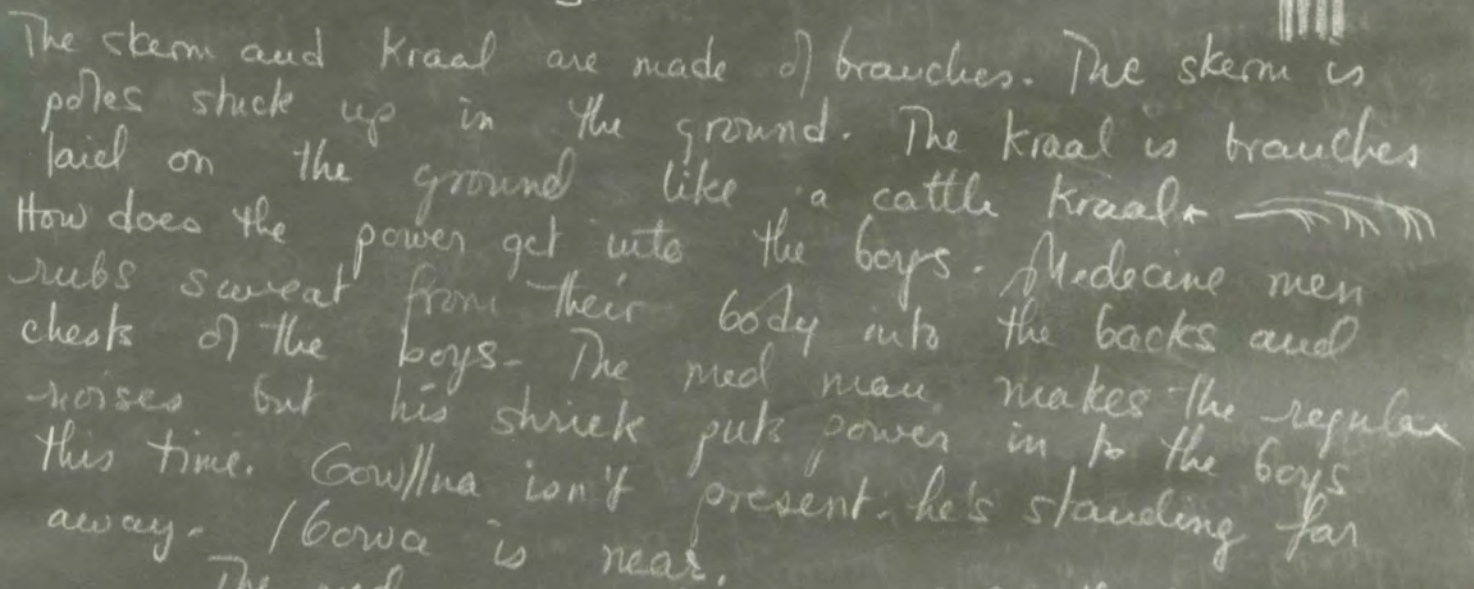 The skerm and Kraal are made of branches. The skerm is
poles stuck up in the ground. The Kraal is branches
laid on the ground like a cattle Kraal.
How does the power get into the boys. Medecine men
rubs sweat from their body into the backs and
chests of the boys. The med man makes the regular
noises but his shriek puts power in to the boys
this time. Gow//na isn't present. he's standing far
away. /Gowa is near.
The med